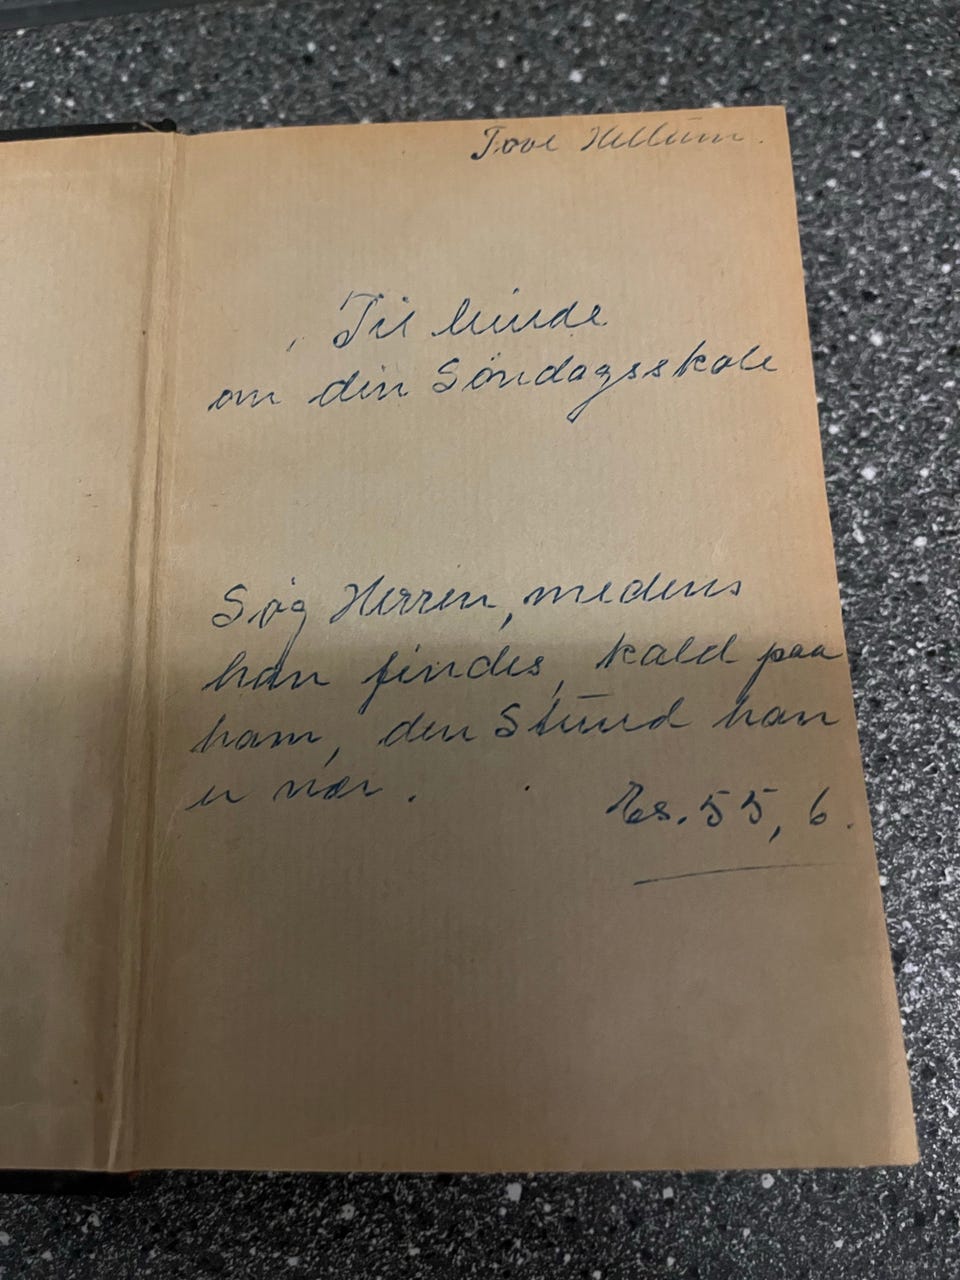 Tove Hellum.
Til Minde
om din Söndagsskole
Søg Herren, medens
han findes, kald paa
ham, den Stund han
er nær.
Es. 55, 6.